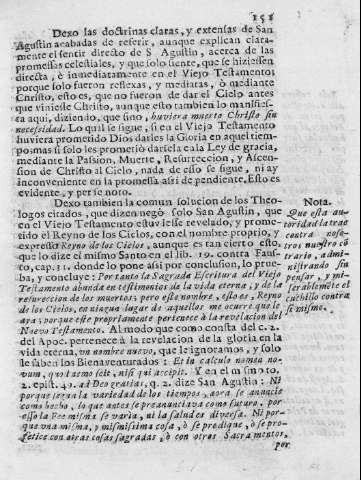 151
Dexo las doctrinas claras, y extensas de San
Agustin acabadas de referir, aunque explican clara-
mente el sentir directo de S. Agustin, acerca de las
promessas celestiales, y que solo siente, que se hiziessen
directa, è inmediatamente en el Viejo Testamento:
porque solo fueron reflexas, y mediatas, ò mediante
Christo, esto es, que no fueron de dar el Cielo antes
que viniesse Christo, aunque esto tambien lo manifies-
ta aqui, diziendo, que sino, huviera muerto Christo sin
necessidad. Lo qual se sigue, si en el Viejo Testamento
huviera prometido Dios darles la Gloria en aquel tiem-
po: mas si solo les prometiò darsela en la Ley de gracia,
mediante la Passion, Muerte, Resurreccion, y Ascen-
sion de Christo al Cielo, nada de esso se sigue, ni ay
inconveniente en la promessa assi dependiente. Esto es
evidente, y per se noto.
Dexo tambien la comun solucion de los Theo-
logos citados, que dizen negò solo San Agustin, que
en el Viejo Testamento estuviesse revelado, y prome-
tido el Reyno de los Cielos, con el nombre proprio, y
expresso Reyno de los Cielos, aunque es tan cierto esto,
que lo dize el mismo Santo en el lib. 19. contra Faus-
to, cap. 31. donde lo pone assi por conclusion, lo prue-
ba, y concluye: Por tanto la Sagrada Escritura del Viejo
Testamento abunda en testimonios de la vida eterna, y de la
resurreccion de los muertos; pero este nombre, esto es, Reyno
de los Cielos, en ningun lugar de aquellos me ocurre que le
aya; porque este propriamente pertenece à la revelacion del
Nuevo Testamento. Al modo que como consta del c. 2.
del Apoc. pertenece à la revelacion de la gloria en la
vida eterna, un nombre nuevo, que le ignoramos, y solo
le saben los Bienaventurados: Et in calculo nomen no-
vum, quod nemo scit, nisi qui accipit. Y en el mismo to.
2. epist. 49. ad Deogratias, q. 2. dize San Agustin: Ni
porque segun la variedad de los tiempos, aora se anuncie
como hecho, lo que antes se preanunciava como futuro, por
esso la Fee misma se varìa, ni la salud es diversa. Ni por-
que una misma, y mismissima cosa, ò se predique, ò se pro-
fetice con otras cosas sagradas, ò con otros Sacramentos,
por
Nota.
Que esta au-
toridad la trae
contra noso-
tros nuestro cõ
trario, admi-
nistrando sin
pensar, y mi-
serablemẽte el
cuchillo contra
si mismo.